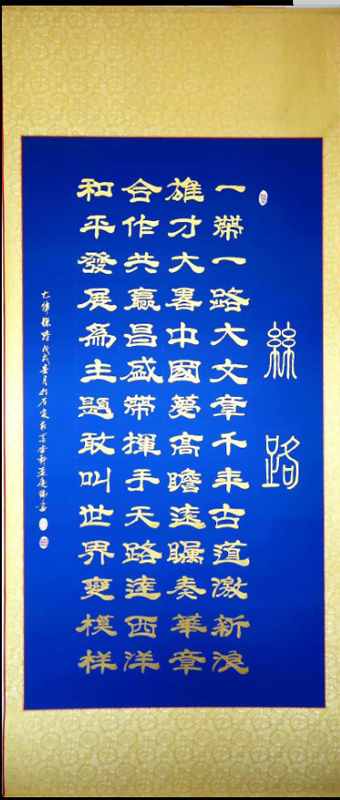 絲路
一帶一路大文章千年古道激新浪
雄才大畧中國夢高瞻遠矚奏華章
合作共贏昌盛帶揮手天路達西洋
和平發展為主題敢叫世界變模樣